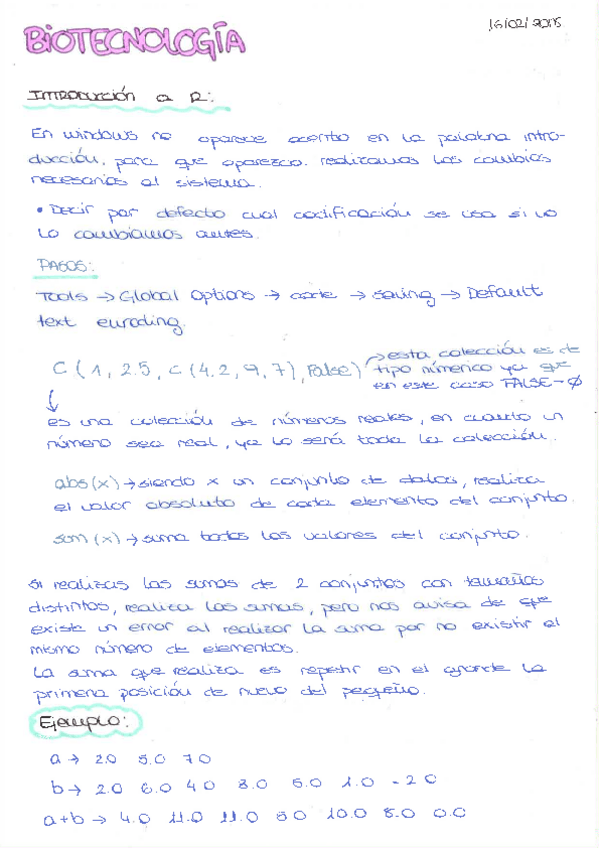 16/02/2015
BIOTECNOLOGÍA
INTRODUCCIÓN a R:
En windows no aparece acento en la palabra intro-
ducción, para que aparezca realizamos los cambios
necesarios al sistema.
• Decir por defecto cual codificación se usa si no
lo cambiamos antes.
PASOS:
Tools → Global Options → code → saving → Default
text encoding.
C(1, 2.5, c(4.2, 9, 7), False) → esta colección es de
tipo númerico ya que
en este caso FALSE-0
es una colección de números reales, en cuanto un
número sea real, ya lo será toda la colección.
abs(x) → siendo x un conjunto de datos, realiza
el valor absoluto de cada elemento del conjunto.
sum(x) → suma todos los valores del conjunto.
Si realizas las sumas de 2 conjuntos con tamaños
distintos, realiza las sumas, pero nos avisa de que
existe un error al realizar la suma por no existir el
mismo número de elementos.
La suma que realiza es repetir en el grande la
primera posición de nuevo del pequeño.
Ejemplo:
a → 2.0 5.0 7.0
b → 2.0 6.0 4.0 3.0 5.0 1.0 -2.0
a+b → 4.0 11.0 11.0 5.0 10.0 8.0 0.0